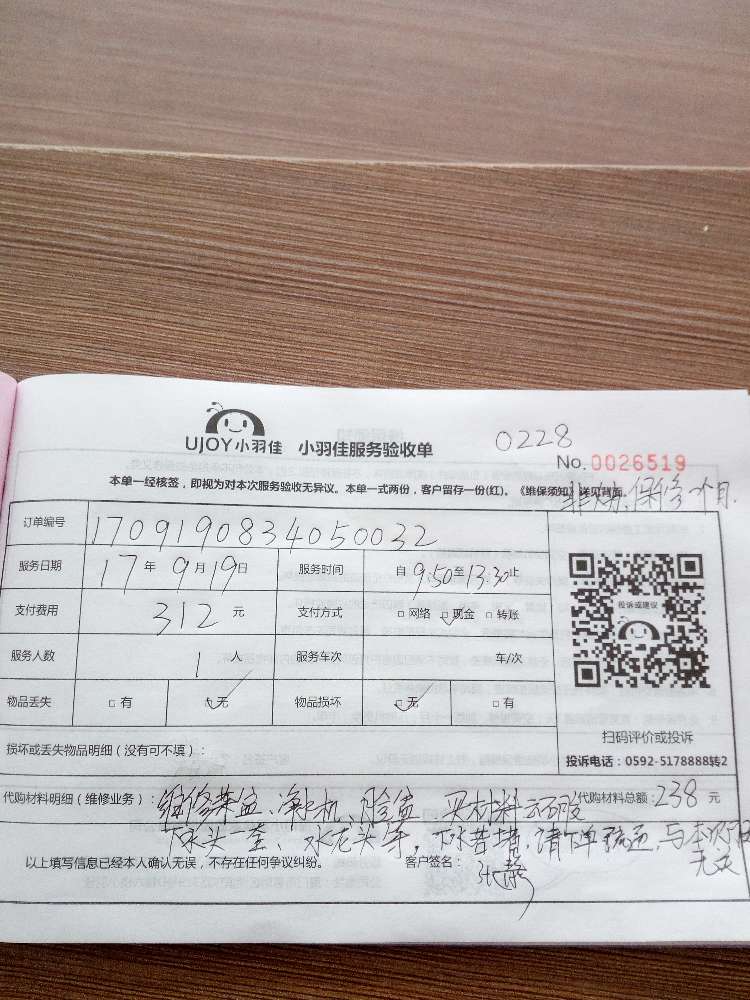 UJOY小羽佳 小羽佳服务验收单 0228
No. 0026519
本单一经核签，即视为对本次服务验收无异议。本单一式两份，客户留存一份(红)。《维保须知》详见背面。
保修1个月.
订单编号 17091908340500032
服务日期 17年9月19日 服务时间 自9:50至13:30止
支付费用 312元 支付方式 □网络 □现金 □转账
服务人数 1人 服务车次 车/次
物品丢失 □有 □无 物品损坏 □无 □有
投诉或建议
扫码评价或投诉
投诉电话：0592-5178888转2
损坏或丢失物品明细（没有可不填）：
代购材料明细（维修业务）：维修菜盆、净水机、脸盆、买材料云石胶 代购材料总额：238元
下水头一套、水龙头等，下水若堵，请下单疏通，与本次
无关
以上填写信息已经本人确认无误，不存在任何争议纠纷。 客户签名：